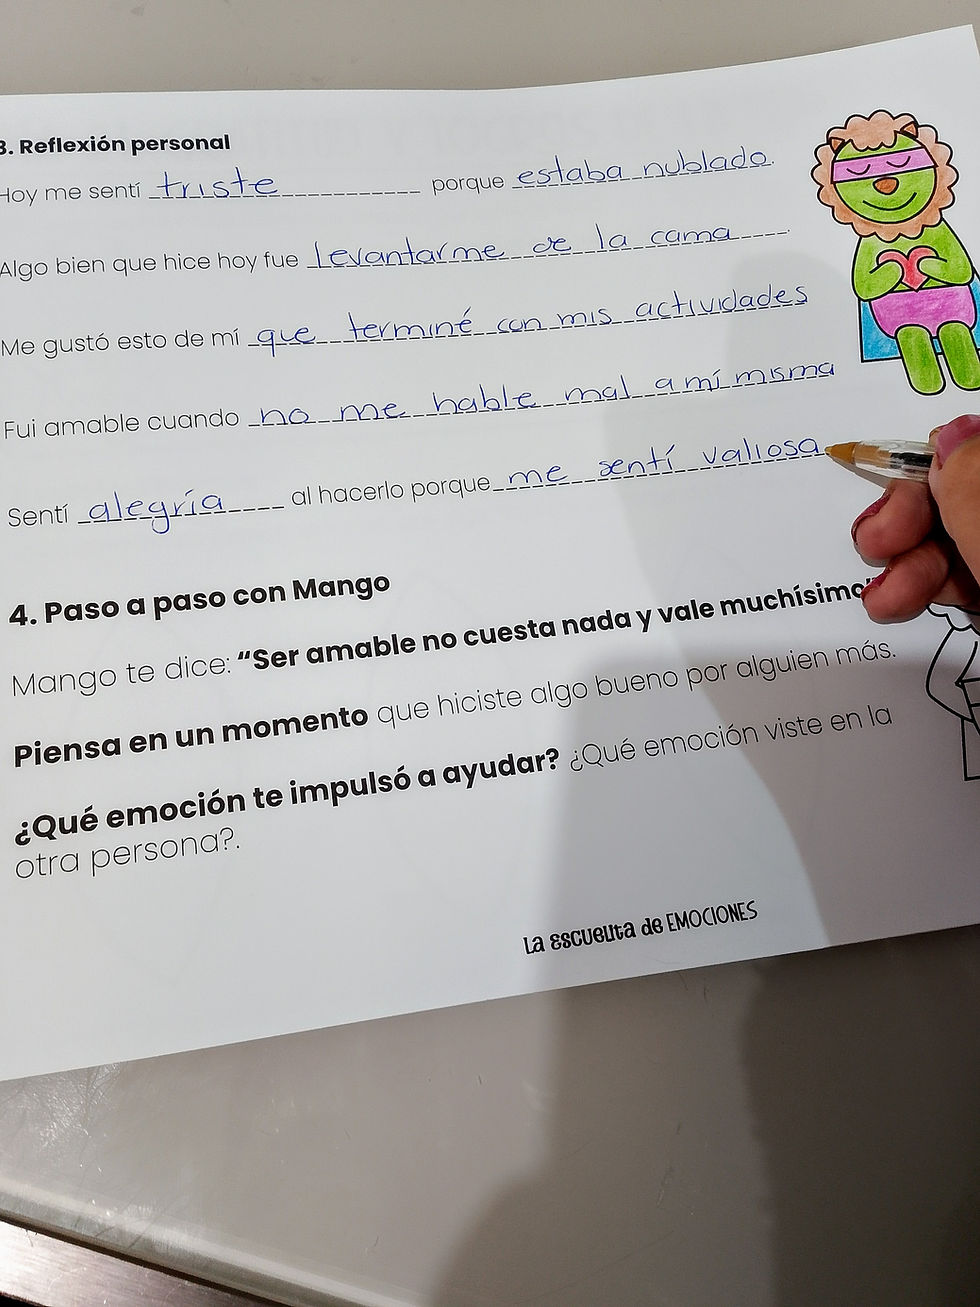 3. Reflexión personal
Hoy me sentí triste porque estaba nublado.
Algo bien que hice hoy fue levantarme de la cama.
Me gustó esto de mí que terminé con mis actividades
Fui amable cuando no me hable mal a mí misma
Sentí alegría al hacerlo porque me sentí valiosa
4. Paso a paso con Mango
Mango te dice: “Ser amable no cuesta nada y vale muchísimo”
Piensa en un momento que hiciste algo bueno por alguien más.
¿Qué emoción te impulsó a ayudar? ¿Qué emoción viste en la
otra persona?.
La escuelita de EMOCIONES